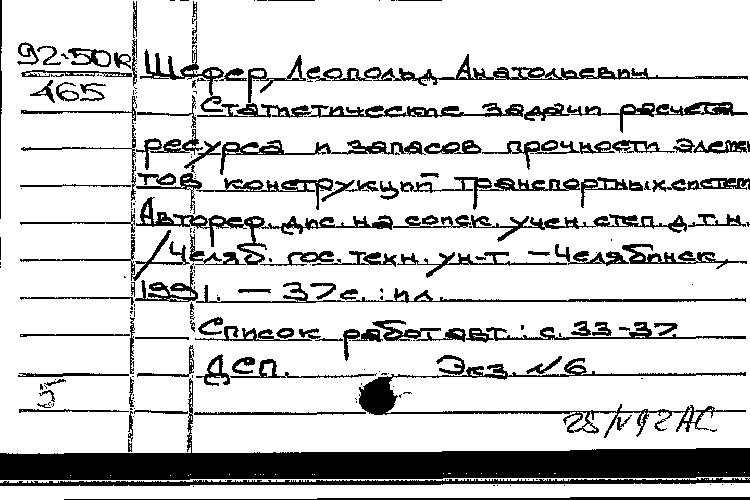 92-50к Шефер, Леопольд Анатольевич
465 Статистические задачи расчета
ресурса и запасов прочности элемен
тов конструкций транспортных систем
Автореф. дис. на соиск. учен. степ. д.т.н.
/Челяб. гос. техн. ун-т. – Челябинск,
1991. – 37 с. : ил.
Список работ авт. : с. 33-37.
ДСП. Экз. №6.
5